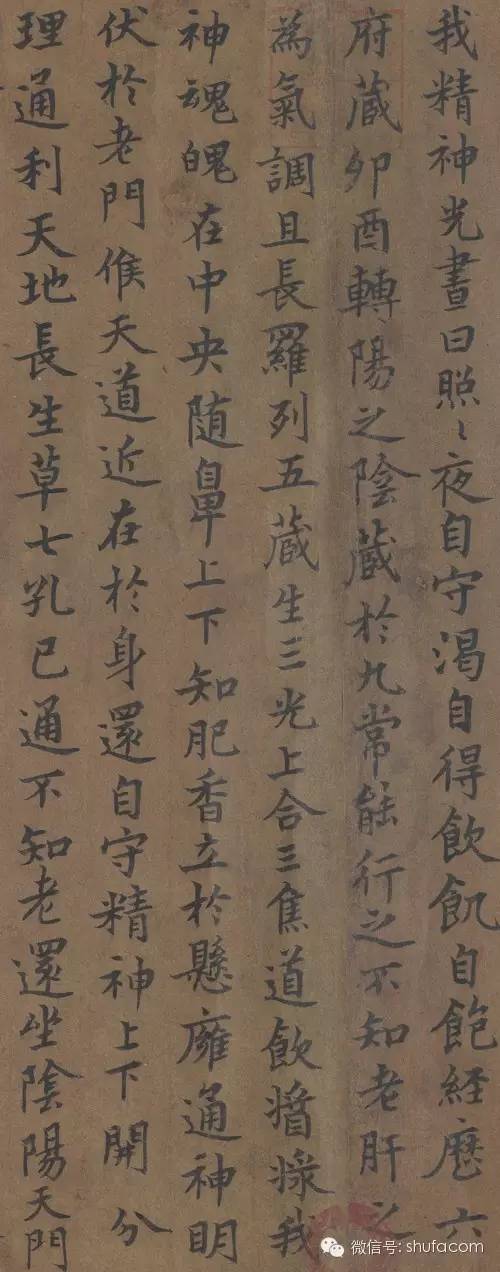 我精神光晝日照〻夜自守渴自得飲飢自飽經歷六
府藏卯酉轉陽之陰藏於九常能行之不知老肝之
為氣調且長羅列五藏生三光上合三焦道飲醬漿我
神魂魄在中央随鼻上下知肥香立於懸癰通神明
伏於老門候天道近在於身還自守精神上下開分
理通利天地長生草七孔已通不知老還坐陰陽天門
微信号: shufacom